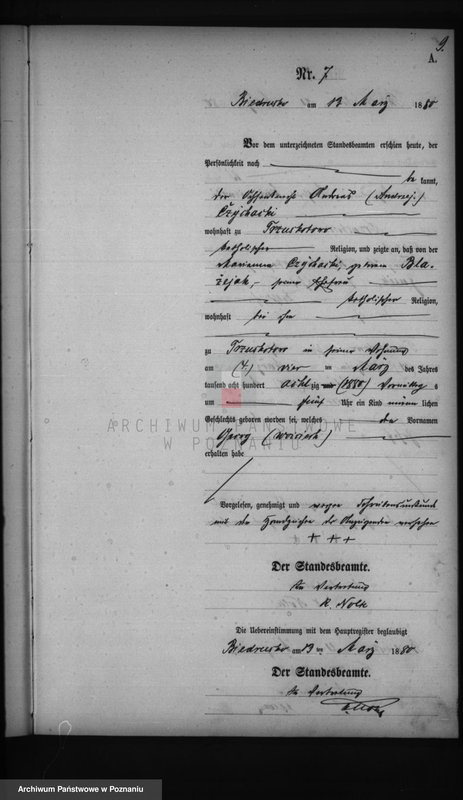 9.
A.
Nr. 7.
Biedrusko am 13 März 1880
Vor dem unterzeichneten Standesbeamten erschien heute, der
Persönlichkeit nach
be kannt,
der Andreas (Andrzej)
wohnhaft zu
katholischer Religion, und zeigte an, daß von der
Marianna geboren Bla-
żejak, seiner Ehefrau
katholischer Religion,
wohnhaft bei ihm
zu in seiner Wohnung
am (4) vier ten März des Jahres
tausend acht hundert acht zig (1880) Vormittag s
um fünf Uhr ein Kind männ lichen
Geschlechts geboren worden sei, welches die Vornamen
Georg (Wojciech)
erhalten habe
Vorgelesen, genehmigt und wegen Schreibensunkunde
mit den Handzeichen des Anzeigenden versehen
+ + +
Der Standesbeamte.
In Vertretung
K. Nolk
Die Uebereinstimmung mit dem Hauptregister beglaubigt
Biedrusko am 13 ten März 1880
Der Standesbeamte.
In Vertretung
ARCHIWUM PAŃSTWOWE
W POZNANIU
Archiwum Państwowe w Poznaniu